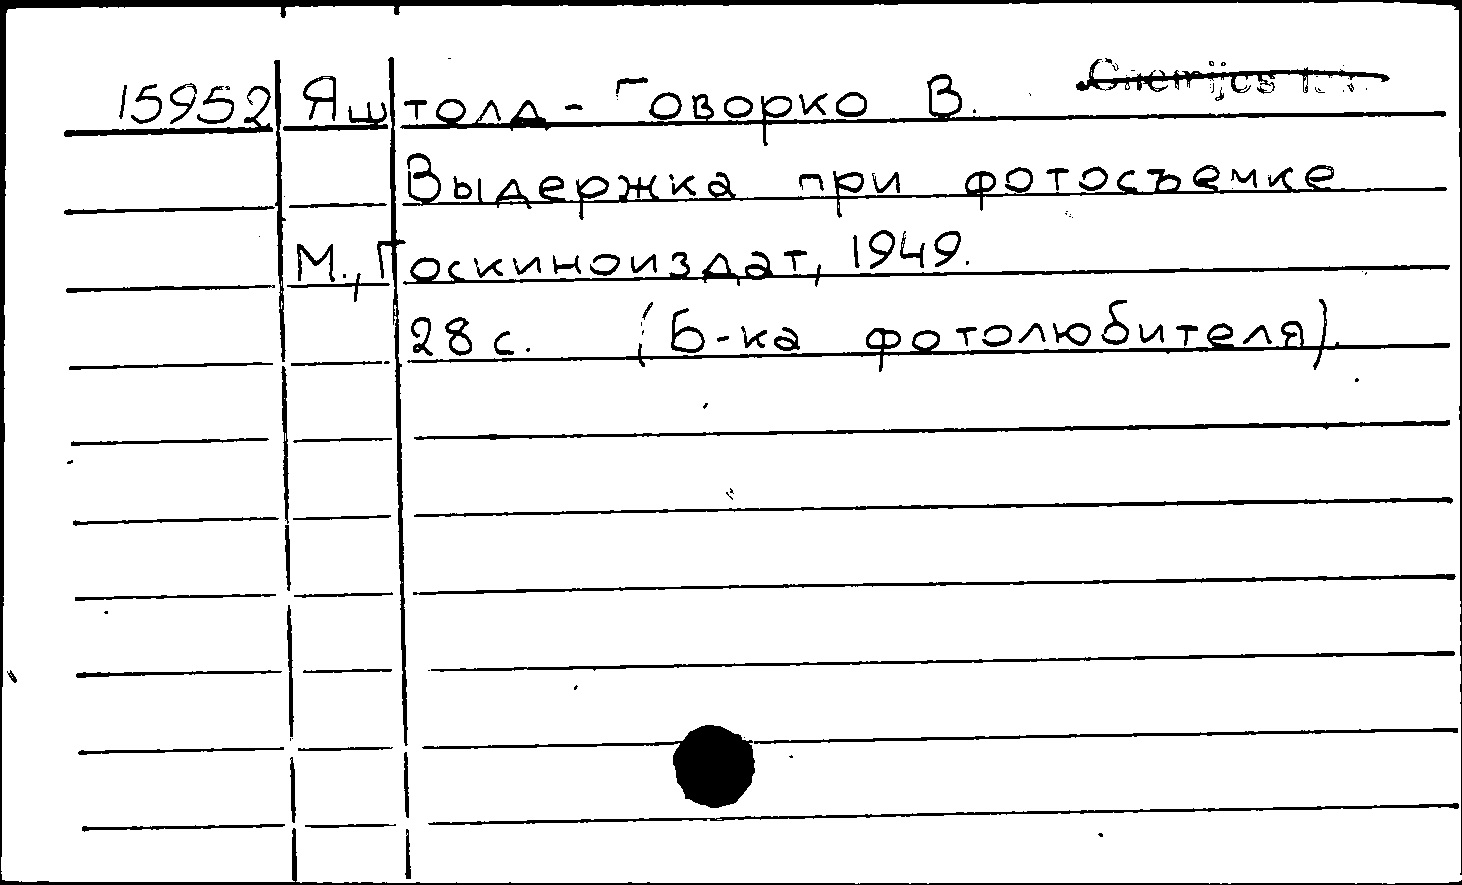 15952 Яштолд-Говорко В. Chemijos
Выдержка при фотосъемке
М., Госкиноиздат, 1949.
28 с. (Б-ка фотолюбителя)